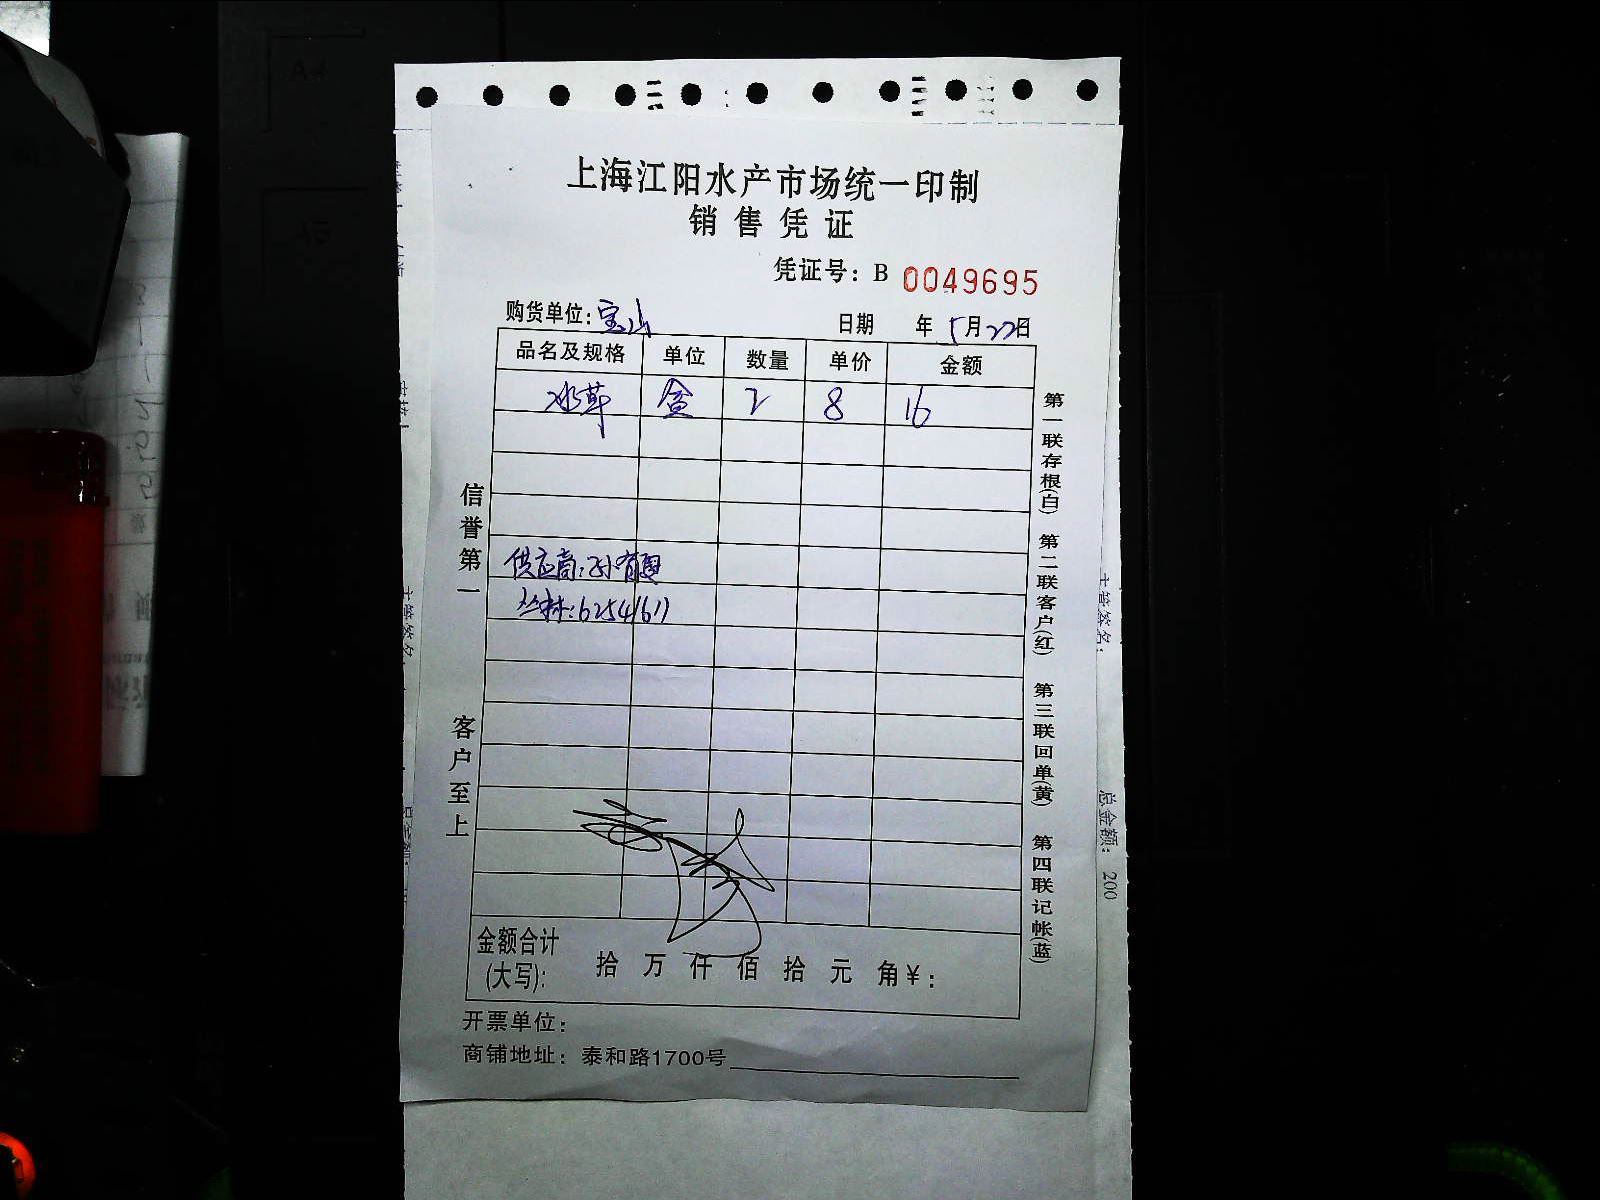 上海江阳水产市场统一印制
销售凭证
凭证号：B 0049695
购货单位：宝山 日期 年 5月22日
品名及规格 单位 数量 单价 金额
冰草 盒 2 8 16
供应商：孙有
丛林：62541611
金额合计(大写)： 拾 万 仟 佰 拾 元 角 ¥：
开票单位：
商铺地址：泰和路1700号
信誉第一
客户至上
第一联存根(白) 第二联客户(红) 第三联回单(黄) 第四联记帐(蓝)
主管签名：
总金额： 200